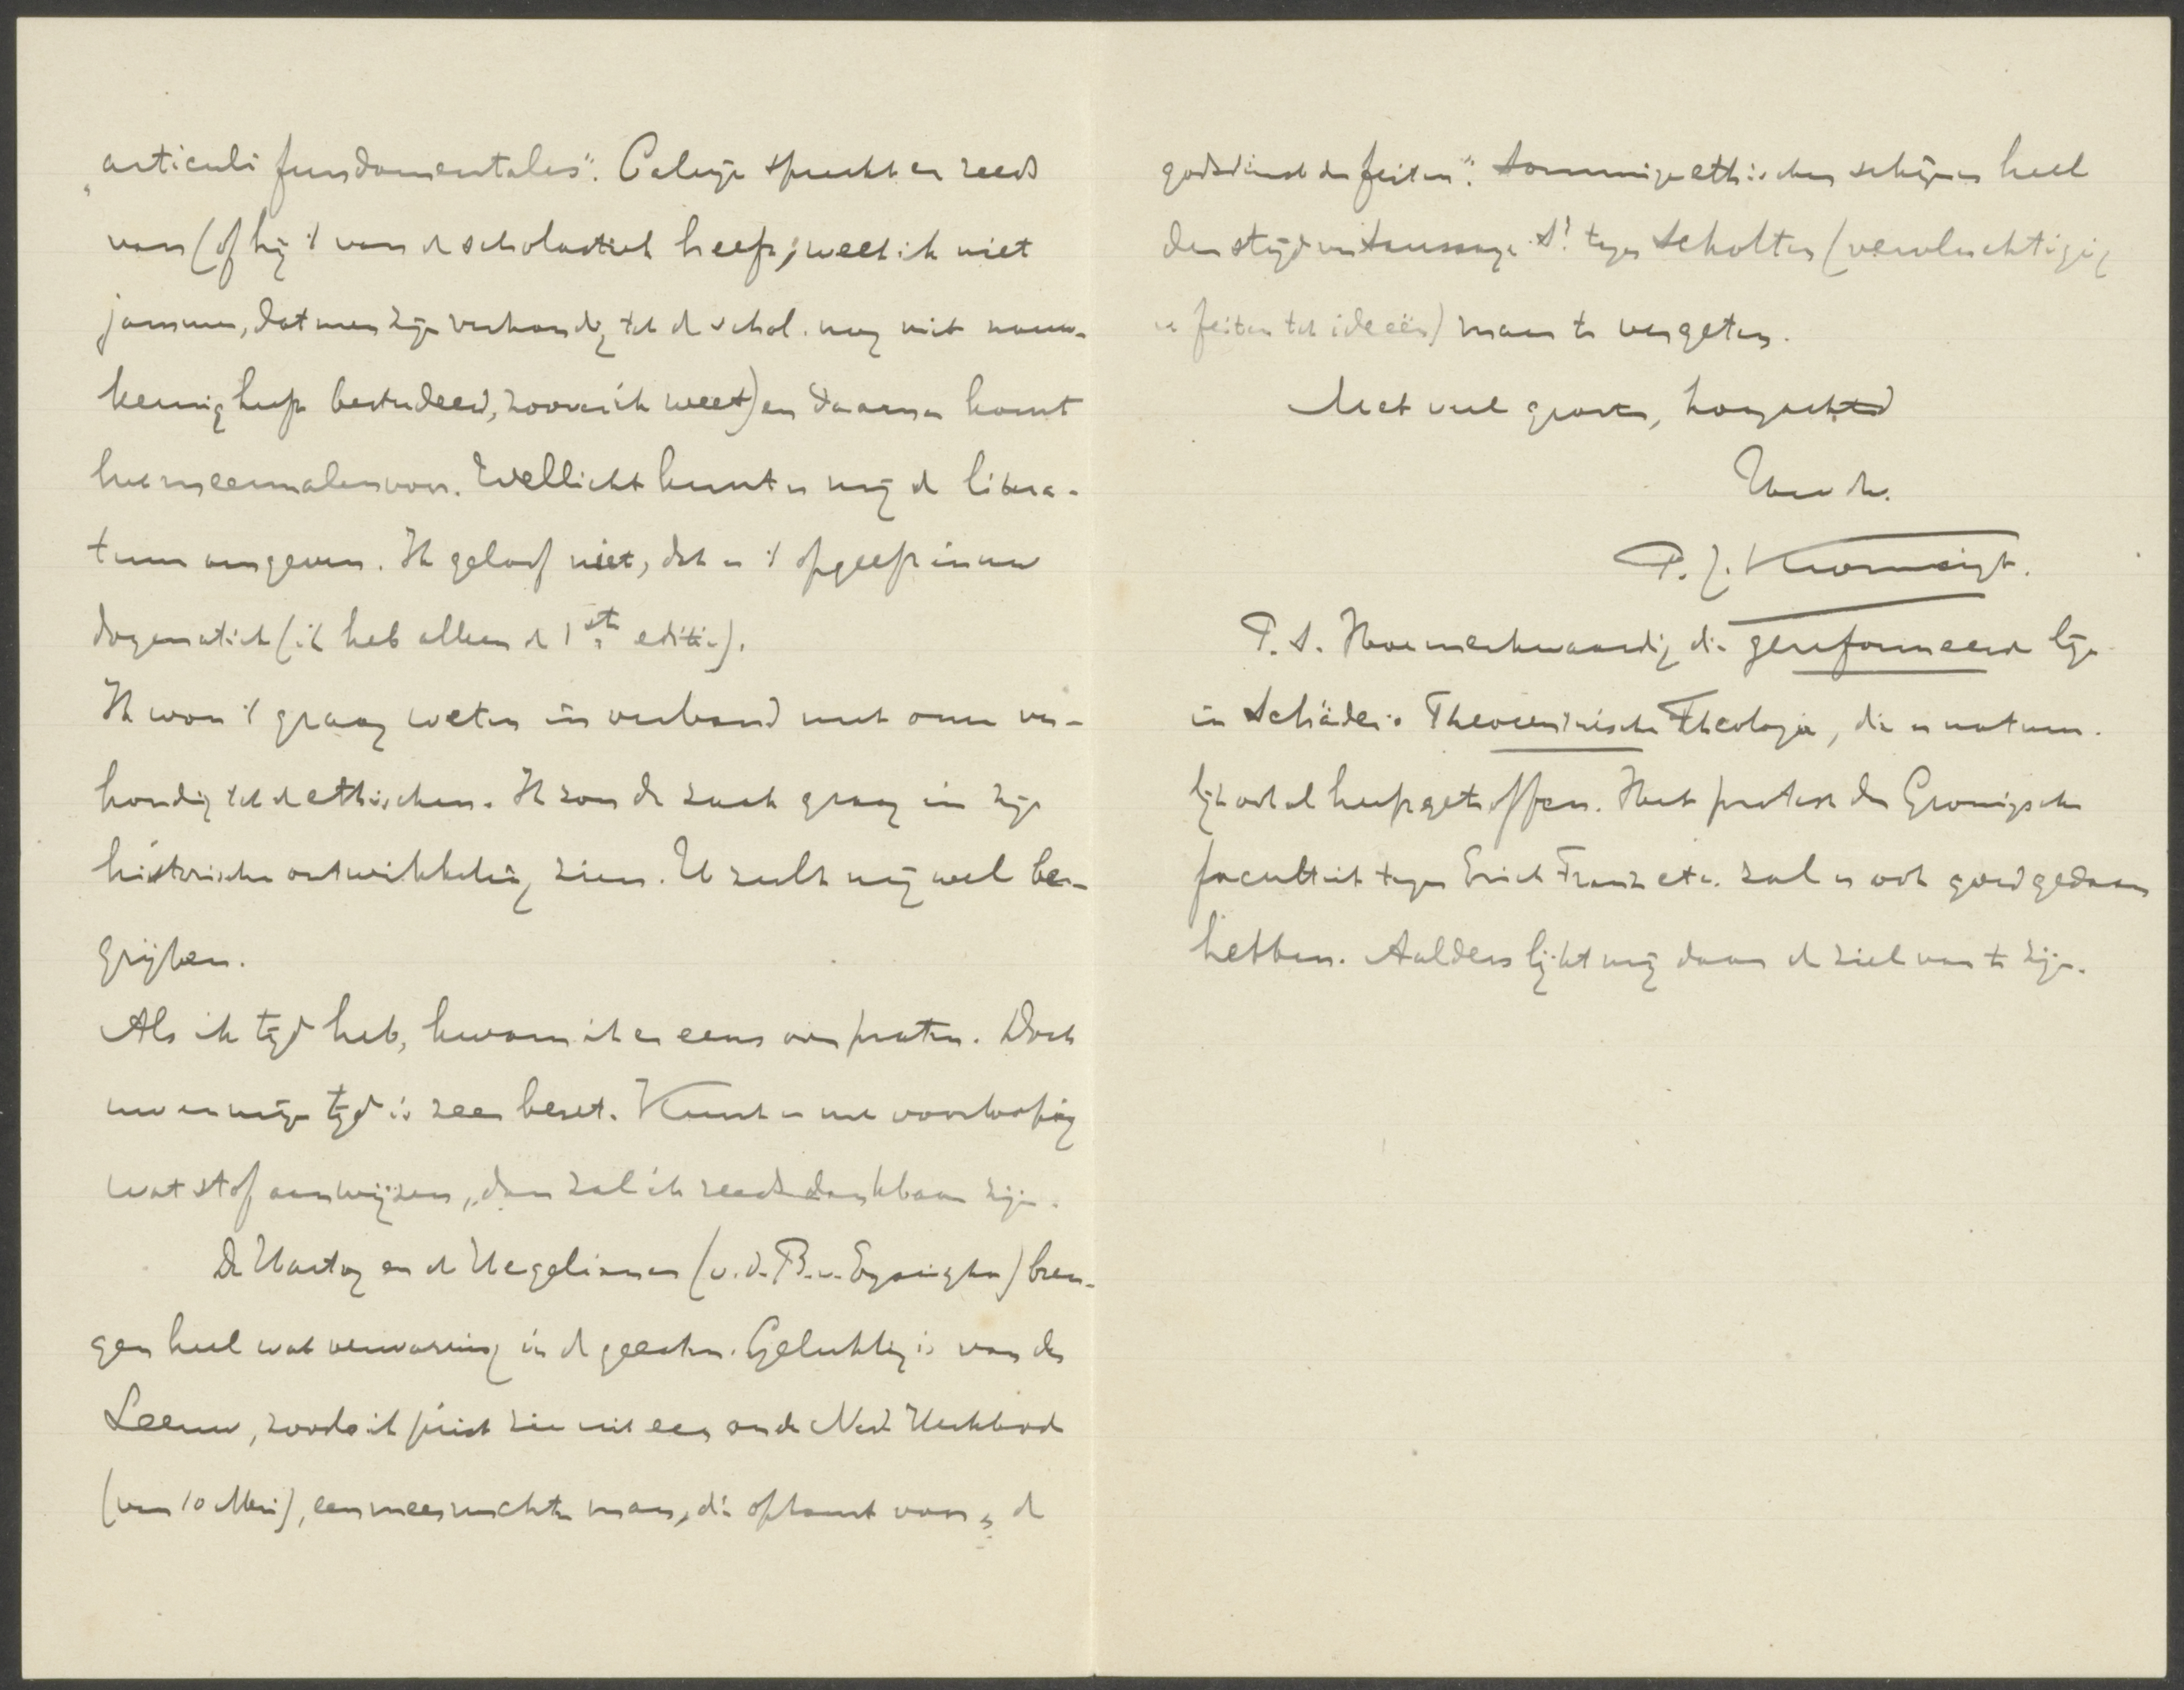 „articuli fundamentales". Calvijn spreekt er reeds
van (of hij 't van de scholastiek heeft, weet ik niet
jammer, dat men zijn verhoudg tot de schol. nog niet nauw-
keurig heeft bestudeerd, zoover ik weet) en daarna komt
het meermalen voor. Wellicht kunt u mij de litera-
tuur aangeven. Ik geloof niet, dat u 't opgeeft in uw
dogmatiek (ik heb alleen de 1ste editie).
Ik wou 't graag weten in verband met onze ver-
houdig tot de ethischen. Ik zou de zaak graag in zijn
historische ontwikkeling zien. U zult mij wel be-
grijpen.
Als ik tijd heb, kwam ik er eens over praten. Doch
uw en mijn tijd is zeer bezet. Kunt u me voorloopig
wat stof aanwijzen, dan zal ik reeds dankbaar zijn.
De Hartog en de Hegelianen (v. d. B. v. Eysinga) bren-
gen heel wat verwarring in de geesten. Gelukkig is van der
Leeuw, zooals ik juist zie uit een oude Ned Kerkbode
(van 10 Mei), een meer nuchter man, die opkomt voor „de
godsdienst der feiten". Sommige ethischen schijnen heel
den strijd van Saussaye Sr tegen Scholten (vervluchtigig
v feiten tot ideeën) maar te vergeten.
Met veel groeten, hoogachtd
Uw dw.
P. J. Kromsigt.
P. S. Hoe merkwaardig die gereformeerde lijn
in Schäder's Theocentrische Theologie, die u natuur-
lijk ook al heeft getroffen. Het protest der Groningsche
faculteit tegen Erich Franz etc. zal u ook goed gedaan
hebben. Aalders lijkt mij daar de ziel van te zijn.